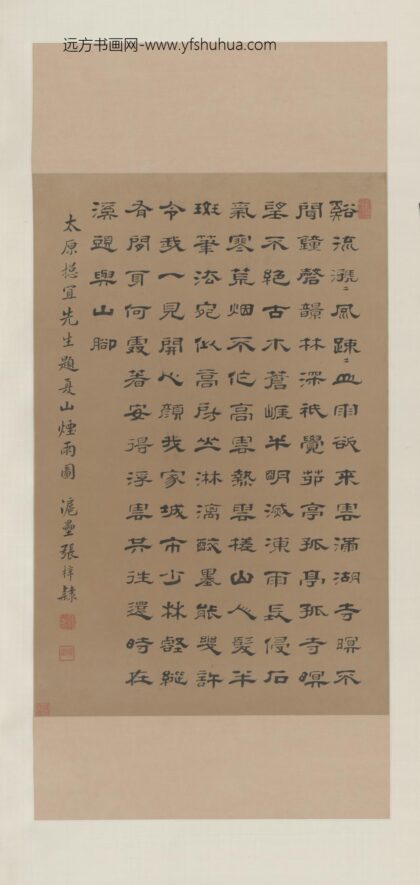 远方书画网-www.yfshuhua.com
谿流〻風踈〻山雨欲來雲滿湖寺暝不
聞鐘磬韻林深祇覺茆亭孤亭孤寺暝
望不絕古木蒼崖半明滅凍雨長侵石
氣寒荒烟不作高雲熱雲山人髮半
斑筆法宛似高房山淋漓醉墨能幾許
令我一見開心顏我家城市少林壑縱
有閒身何處著安得浮雲共往還時在
溪邊與山腳
太原揔宜先生題夏山煙雨圖 滬壘張梓隸